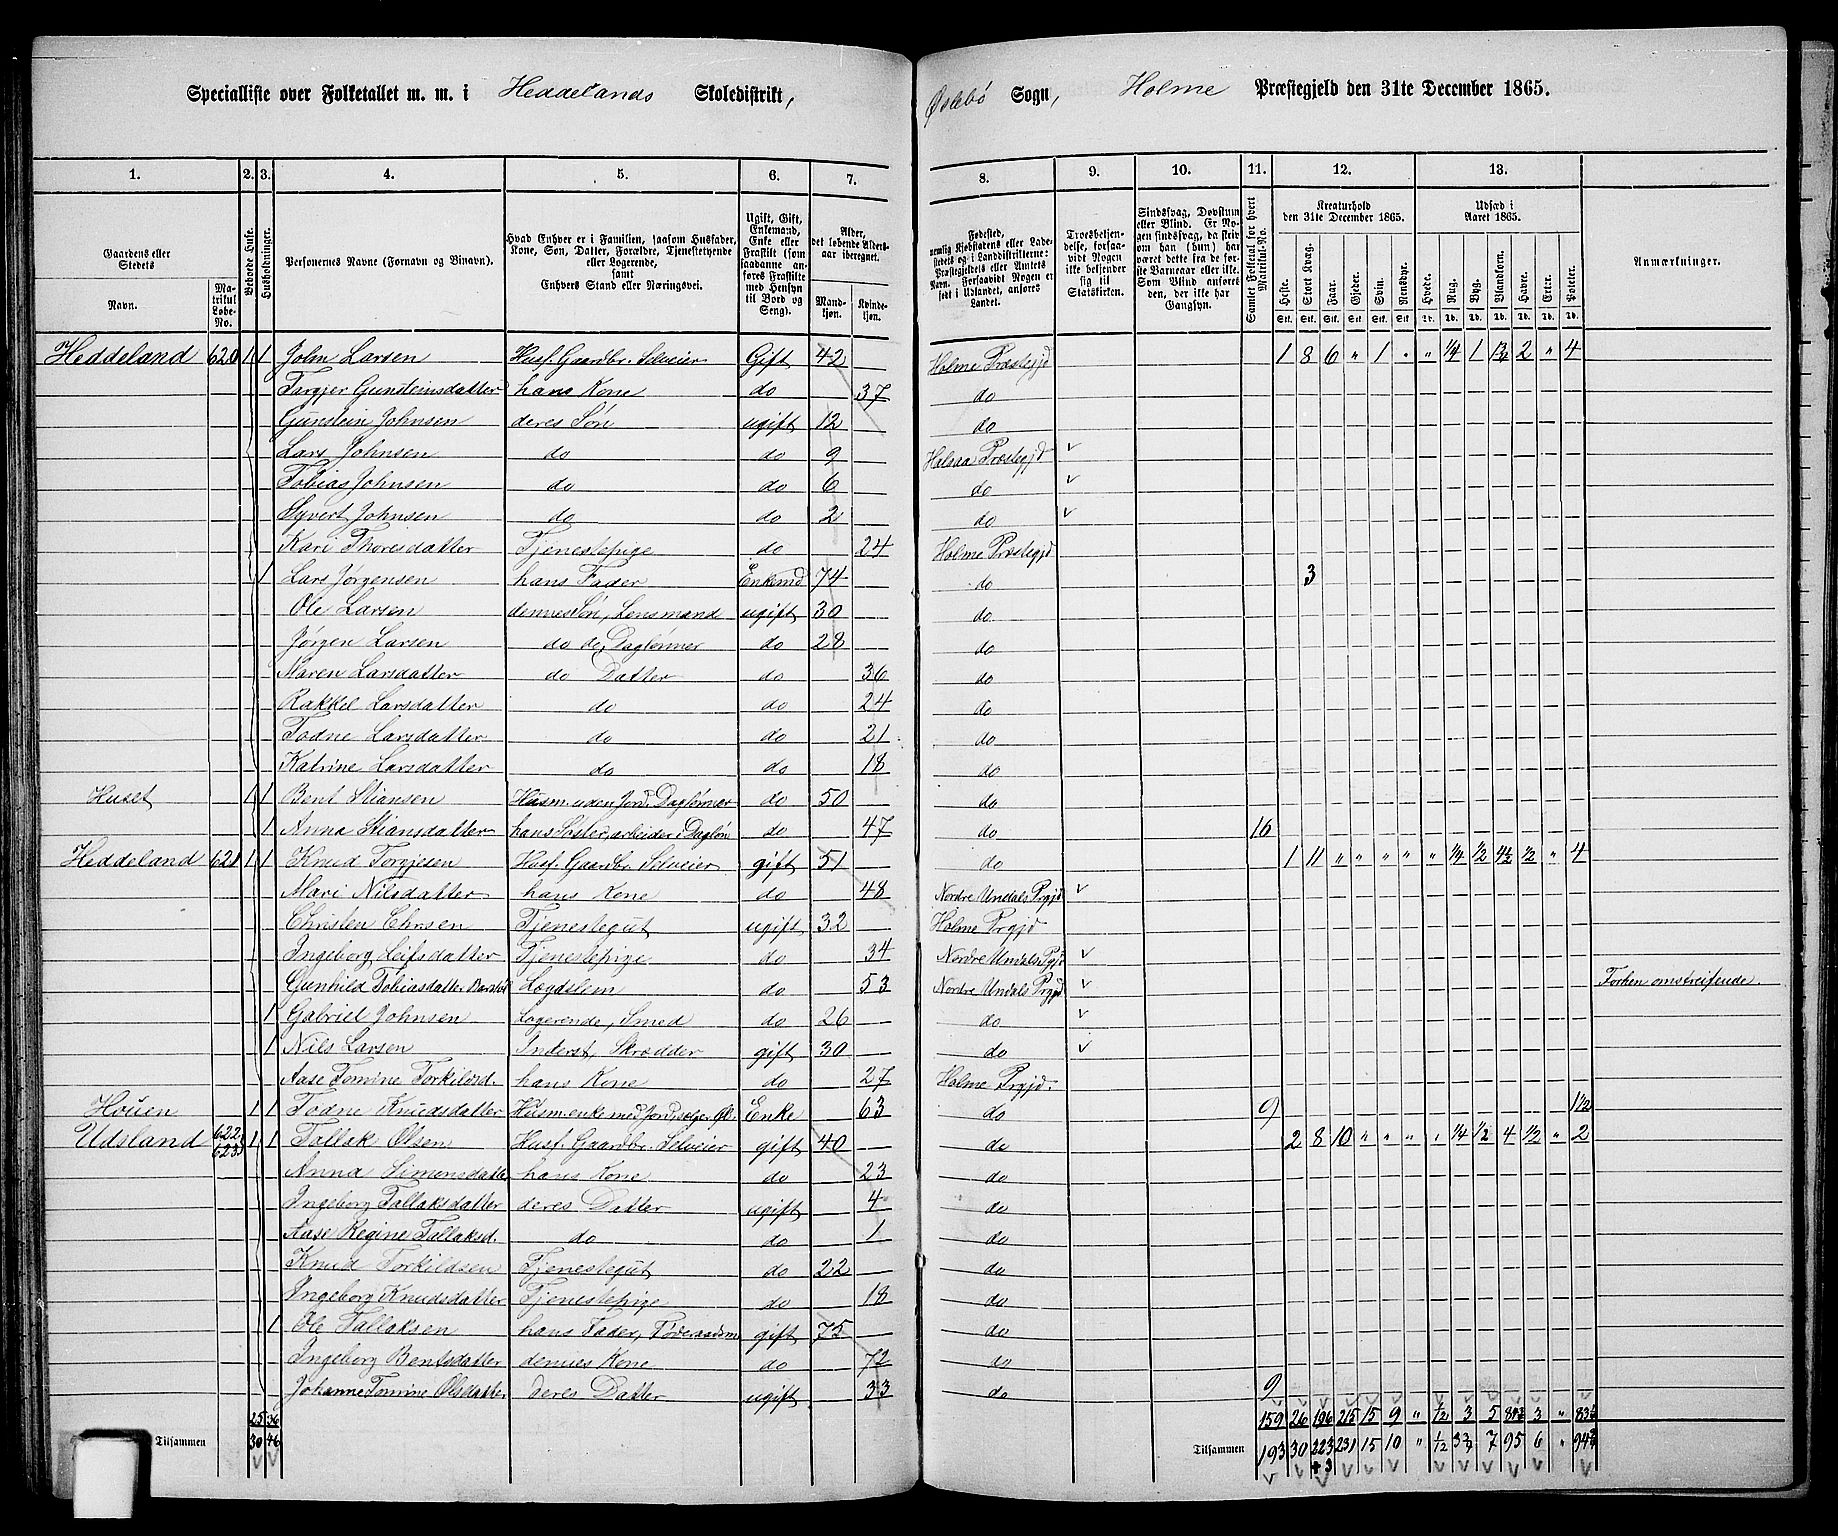 Specialliste over Folketallet m. m. i Heddelands Skoledistrikt, Øslebö Sogn, Holme Præstegjeld den 31te December 1865.
1. 2. 3. 4. 5. 6. 7. 8. 9. 10. 11. 12. 13.
Gaardens eller Stedets
Navn.
Matrikul Løbe-No.
Beboede Huse.
Husholdninger.
Personernes Navne (Fornavn og Tilnavn).
Hvad Enhver er i Familien, saasom Husfader, Kone, Søn, Datter, Forældre, Tjenestetyende eller Logerende, samt Enhvers Stand eller Næringsvei.
Ugift, Gift, Enkemand, Enke eller Fraskilt (som saadanne anføres Fraskilte med Hensyn til Bord og Seng).
Alder, det løbende Aldersaar iberegnet.
Mandkjøn. Kvindekjøn.
Fødested,
Troesbekjendelse, forsaavidt Nogen ikke bekjender sig til Statskirken.
Sindssvag, Døvstum eller Blind.
Kreaturhold den 31te December 1865.
Udsæd i Aaret 1865.
Anmærkninger.
Heste. Stort Kvæg. Faar. Gjeder. Svin. Rensdyr. Hvede. Rug. Byg. Blandkorn. Havre. Erter. Poteter.
Heddeland 620 1 1 John Larsen Husf. Gaardbr. Selveier Gift 42 Holme Præstegjd 1 8 6 " 1 " " 1/4 1 1 1/2 2 " 4
Targjer Gunsteinsdatter hans Kone do 37 do
Gunstein Johnsen deres Søn ugift 12 do
Lars Johnsen do do 9 Halsaa Præstegjd v
Tobias Johnsen do do 6 do v
Syvert Johnsen do do 2 do v
Kari Thoresdatter Tjenestepige do 24 Holme Præstegjd
1 Lars Jørgensen hans Fader Enkemd 74 do 3
Ole Larsen dennes Søn, Lensmand ugift 30 do
Jørgen Larsen do do, Daglønner do 28 do
Maren Larsdatter do Datter do 36 do
Rakkel Larsdatter do do 24 do
Todne Larsdatter do do 21 do
Katrine Larsdatter do do 18 do
Huset 1 1 Bent Stiansen Husm. uden Jord. Daglønner do 50 do
1 Anna Stiansdatter hans Søster, arbeider i Dagløn do 47 do 16
Heddeland 621 1 1 Knud Torgjesen Husf. Gaardbr. Selveier gift 51 do 1 11 " " " " " 1/4 1/2 4 1/2 1/2 " 4
Mari Nilsdatter hans Kone do 48 Nordre Undals Prgjd v
Christen Chrsen Tjenestegut ugift 32 Holme Prgjd
Ingeborg Leifsdatter Tjenestepige do 34 Nordre Undals Prgjd v
Gunhild Tobiasdatter Lægdslem do 53 Nordre Undals Prgjd v omstreifende.
1 Gabriel Johnsen Logerende, Smed do 26 do v
1 Nils Larsen Inderst, Skrædder gift 30 do v
Aase Tomine Torkildsd. hans Kone do 27 Holme Prgjd.
Houen 1 1 Todne Knudsdatter Husm.enke med Jord, Enke 63 do 9 1 1/2
Udsland 622 623 1 1 Tallak Olsen Husf. Gaardbr. Selveier gift 40 do 2 8 10 " " " " 1/4 1/2 4 1/2 " 2
Anna Simonsdatter hans Kone do 23 do
Ingeborg Tallaksdatter deres Datter ugift 4 do
Aase Regine Tallaksd. do do 1 do
Knud Torkildsen Tjenestegut do 22 do
Ingeborg Knudsdatter Tjenestepige do 18 do
1 Ole Tallaksen hans Fader, Føderaadsm gift 75 do
Ingeborg Bentsdatter dennes Kone do 72 do
Johanne Tomine Olsdatter deres Datter ugift 33 do 9
25 36 159 26 196 215 15 9 " 1/2 3 5 3 "
Tilsammen 30 46 Tilsammen 193 30 223 231 15 10 " 1/2 7 95 6 "
+3